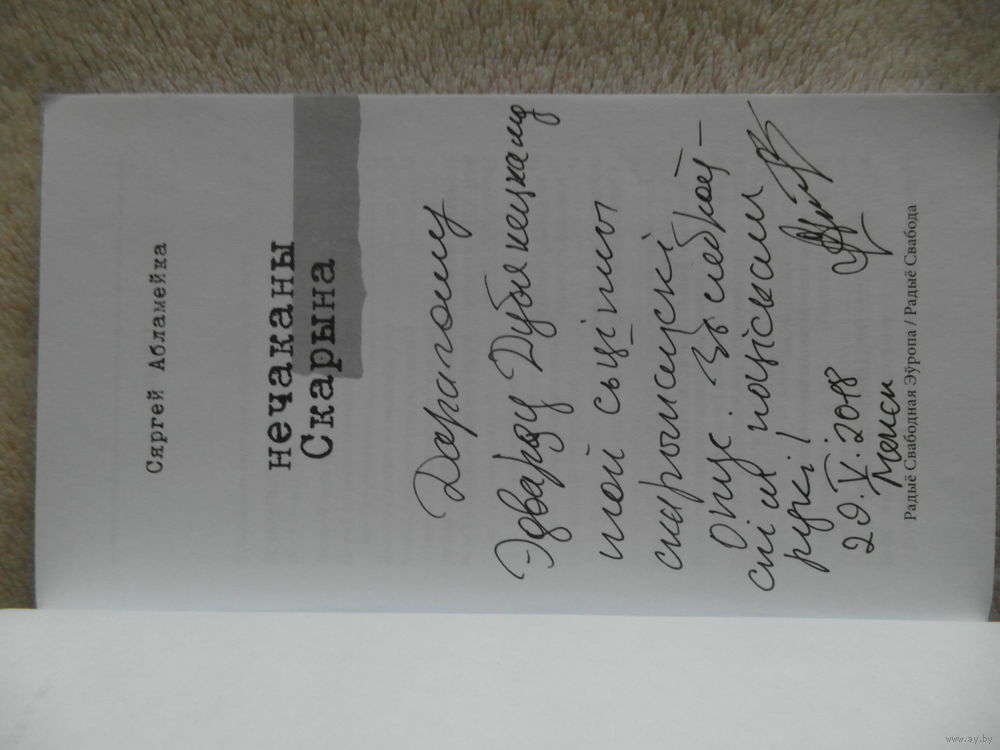 Сяргей Абламейка
нечаканы
Скарына
Дарагому
Эдварду Дубянецкаму
мой сьціплы
скарынаўскі
опус. Зь сяброў-
скім поціскам
рукі!
29.V.2018
Менск
Радыё Свабодная Эўропа / Радыё Свабода
www.ay.by